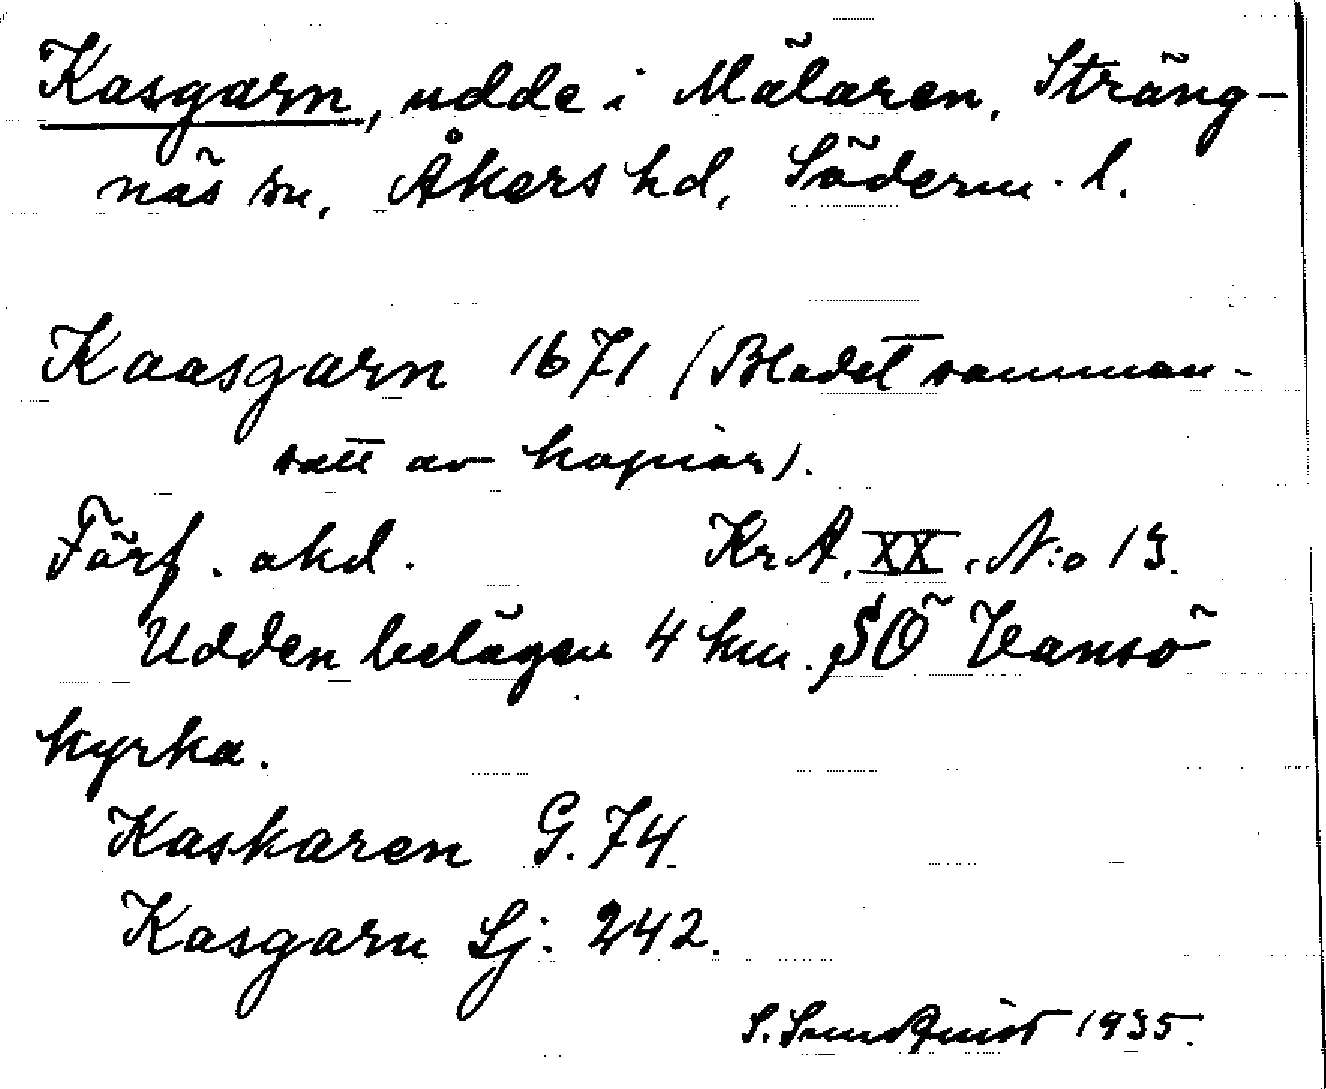 Kasgarn, udde i Mälaren, Sträng-
näs sn, Åkers hd, Söderm. l.
Kaasgarn 1671 (Bladet samman-
satt av kopior).
Förf. okd. Kr.A. XX. N:o 13.
Udden belägen 4 km. SÖ Vansö
kyrka.
Kaskaren G. 74.
Kasgarn Sj. 242.
S. Sundquist 1935.